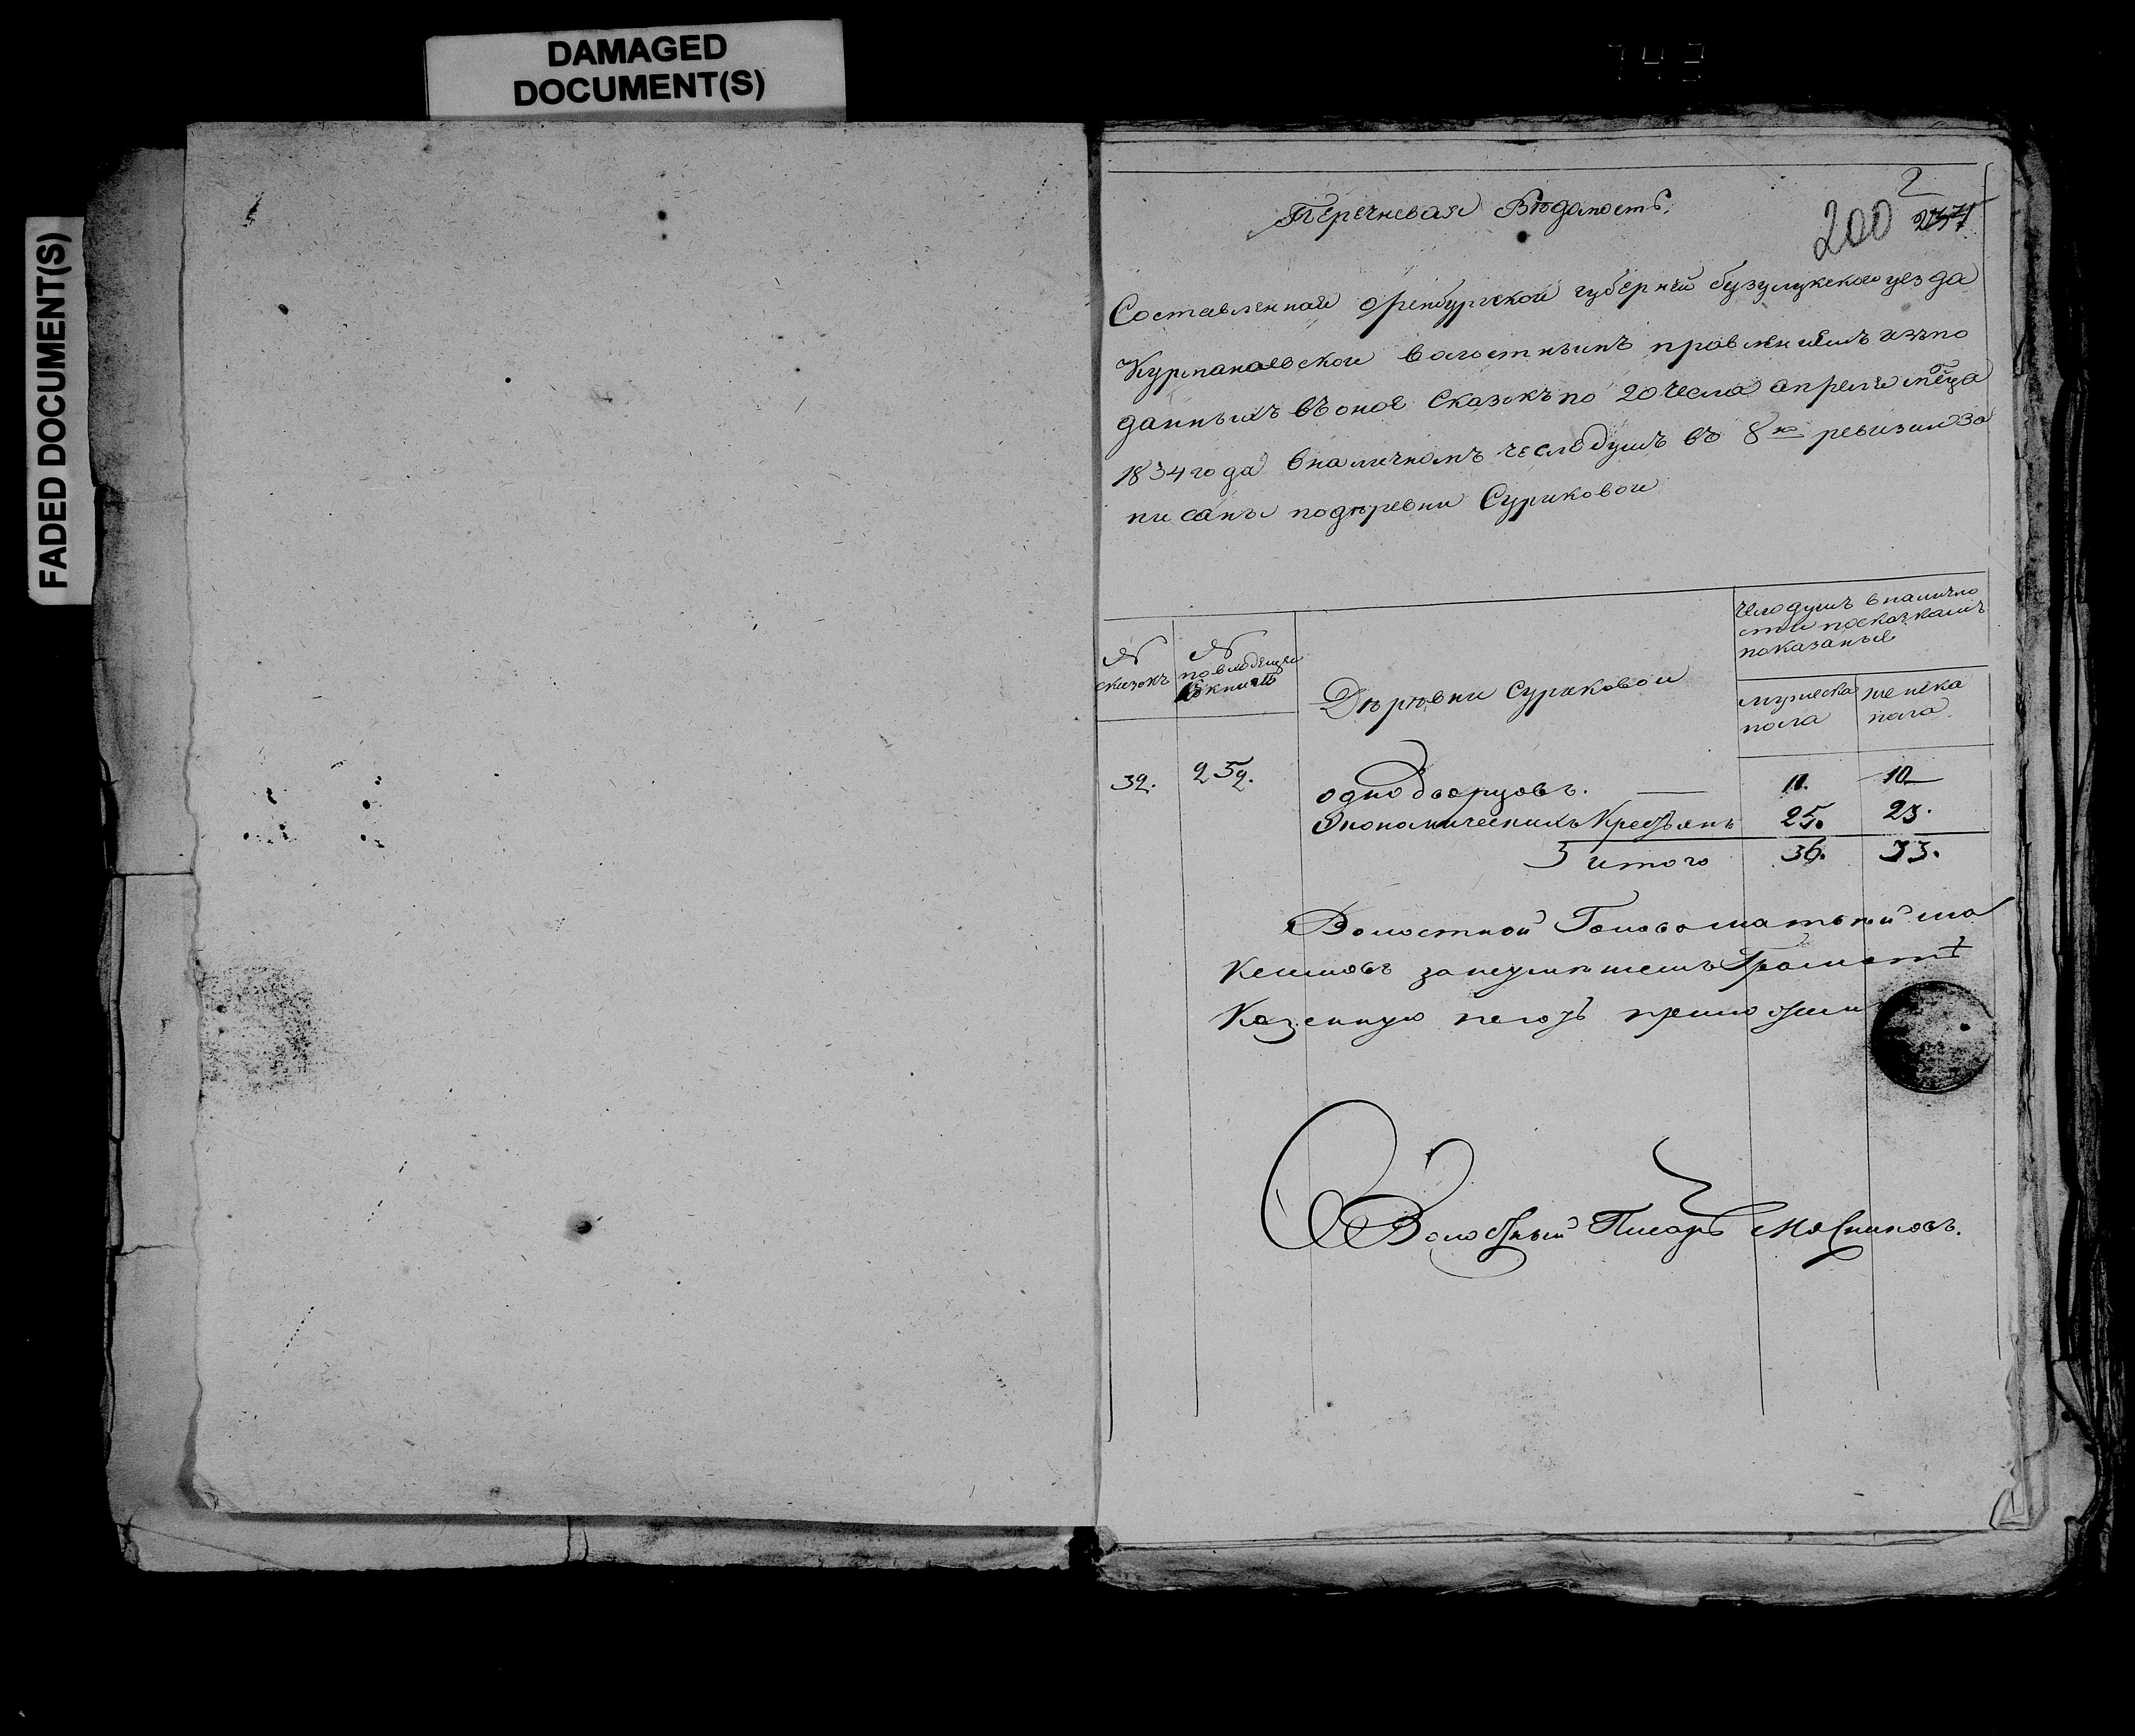 DAMAGED
DOCUMENT(S)
FADED DOCUMENT(S)
Перечневая Вѣдамость.
2
200 237
Составленная оренбургской губерней бузулукскаго уезда
Курманаевской волостнымъ правлениемъ изъпо
данныхъ въоное сказокъ по 20 числа апреля мѣца
1834 года вналичномъ числе душъ въ 8ю ревизию за
писаны подѣревни Суриковой
№ сказокъ
№ повходящей книги
Дѣрѣвни Суриковой
Число душъ вналично
сти посказкамъ
показаные
мужеска пола
женска пола
32. 252. однодворцовъ. — 11. 10
Экономическихъ Крестьянъ 25. 23.
итого 36. 33.
Волостной Голова
за неумѣниемъ Грамотѣ
Казенную печать приложилъ
Волостный Писарь Мясниковъ.